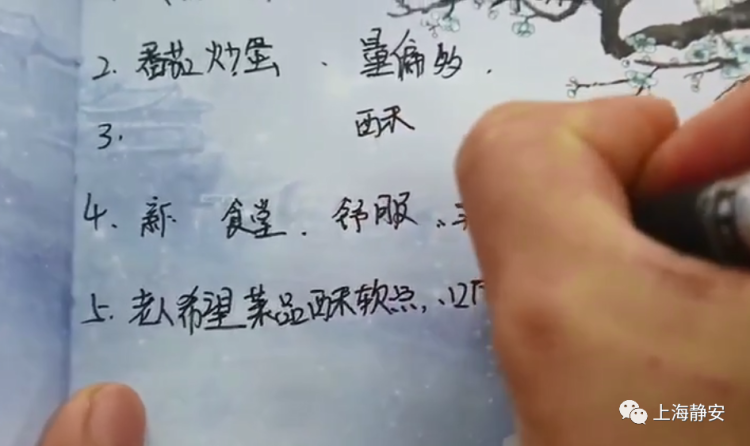 2. 番茄炒蛋 、 量偏多.
3. 西禾
4. 新 食堂. 舒服
5. 老人希望菜品西禾软点,
上海静安